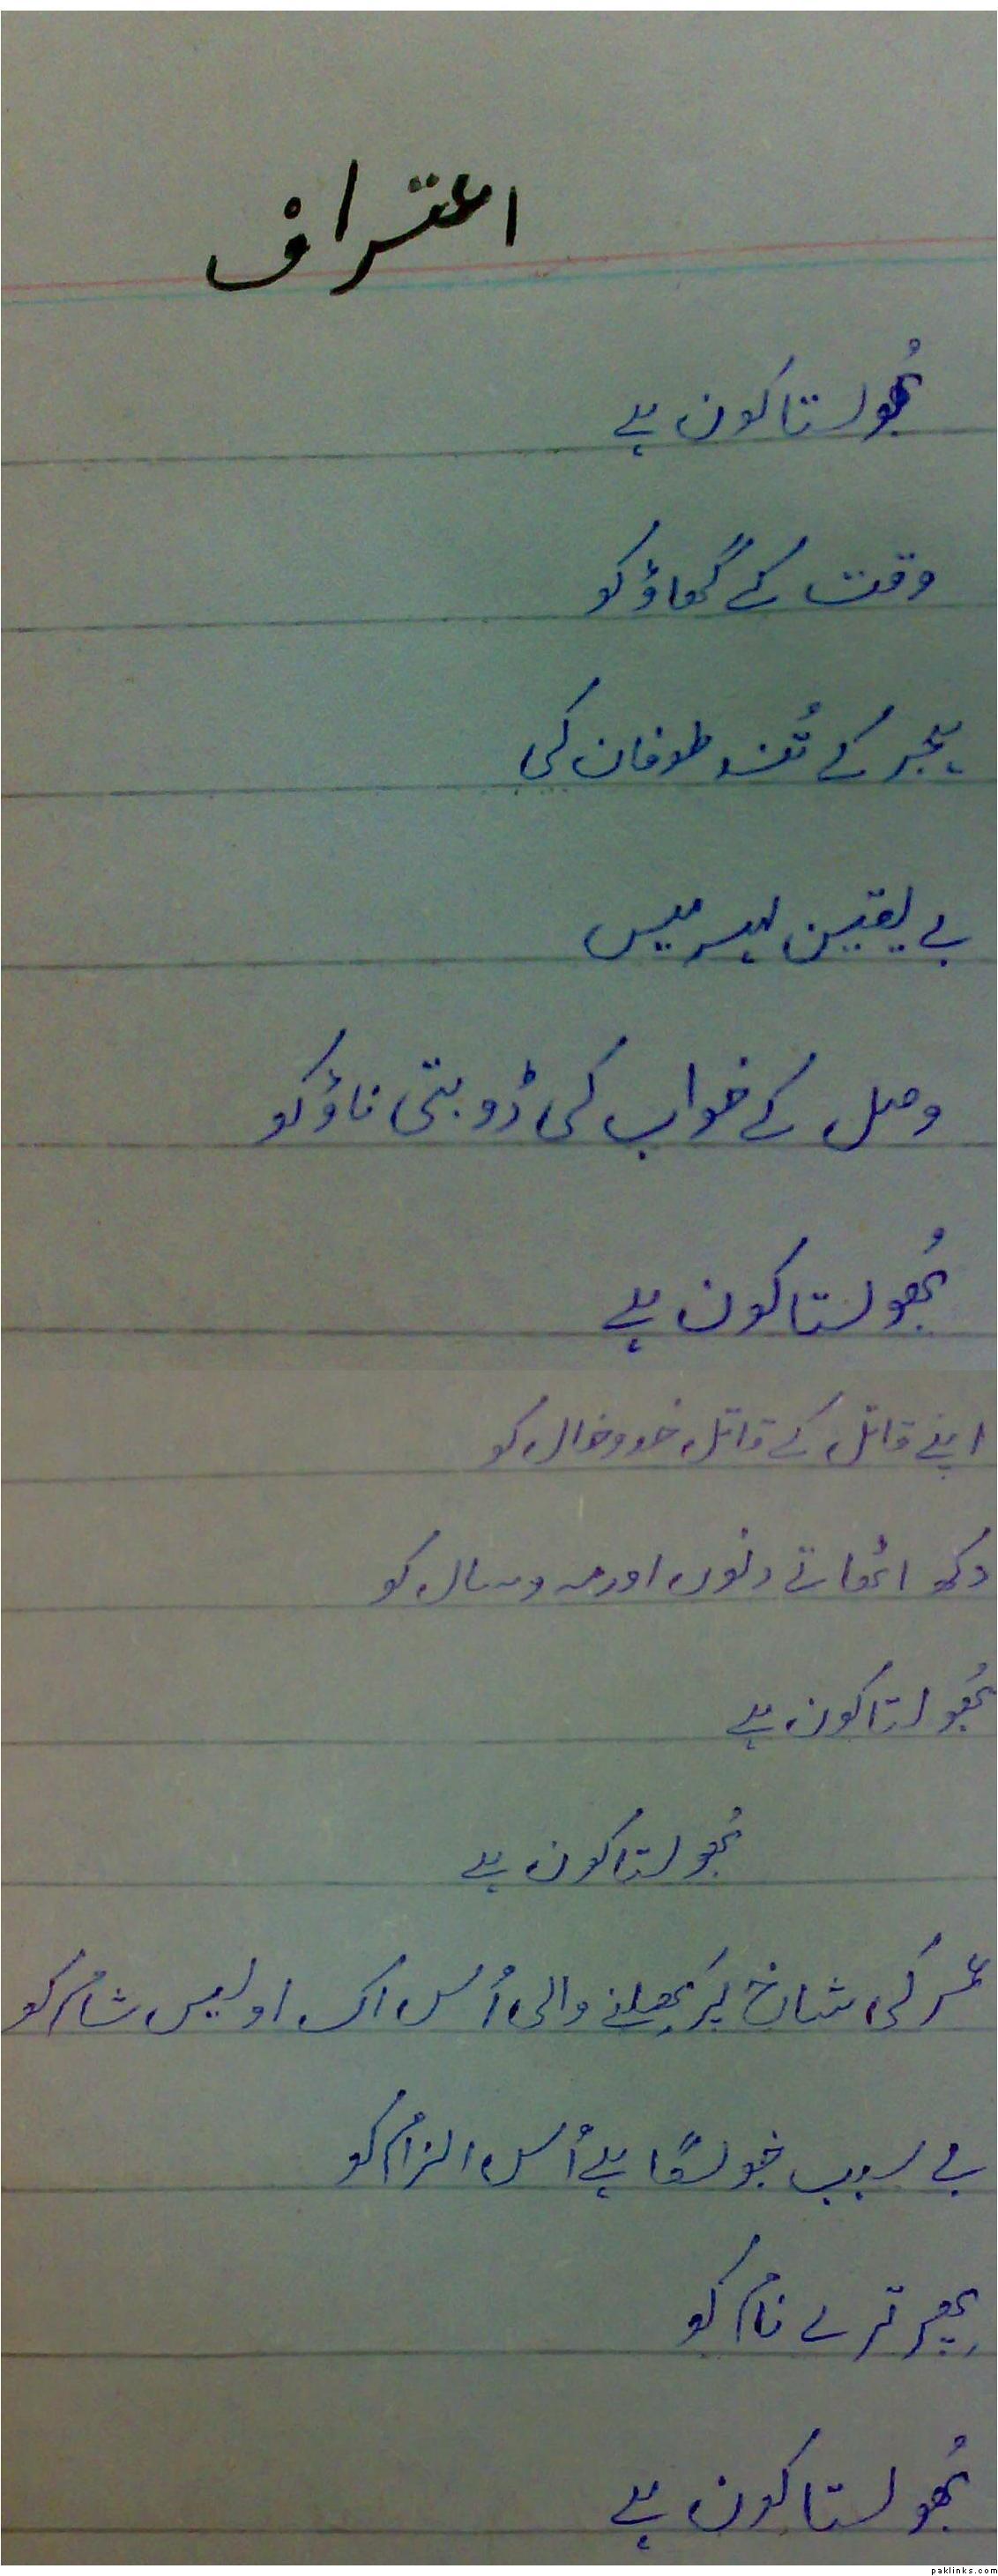 اعتراف
بُھولتا کون ہے
وقت کے گھاؤ کو
ہجر کے تُند طوفان کی
بے یقین لہر میں
وصل کے خواب کی ڈوبتی ناؤ کو
بُھولتا کون ہے
اپنے قاتل کے قاتل خدوخال کو
دکھ اٹھاتے دنوں اور مہ و سال کو
بُھولتا کون ہے
بُھولتا کون ہے
عُمر کی شاخ پَر کِھلنے والی اُس اک اولیں شام کو
بے سبب جو لگا ہے اُس الزام کو
پِھر ترے نام کو
بُھولتا کون ہے
paklinks.com